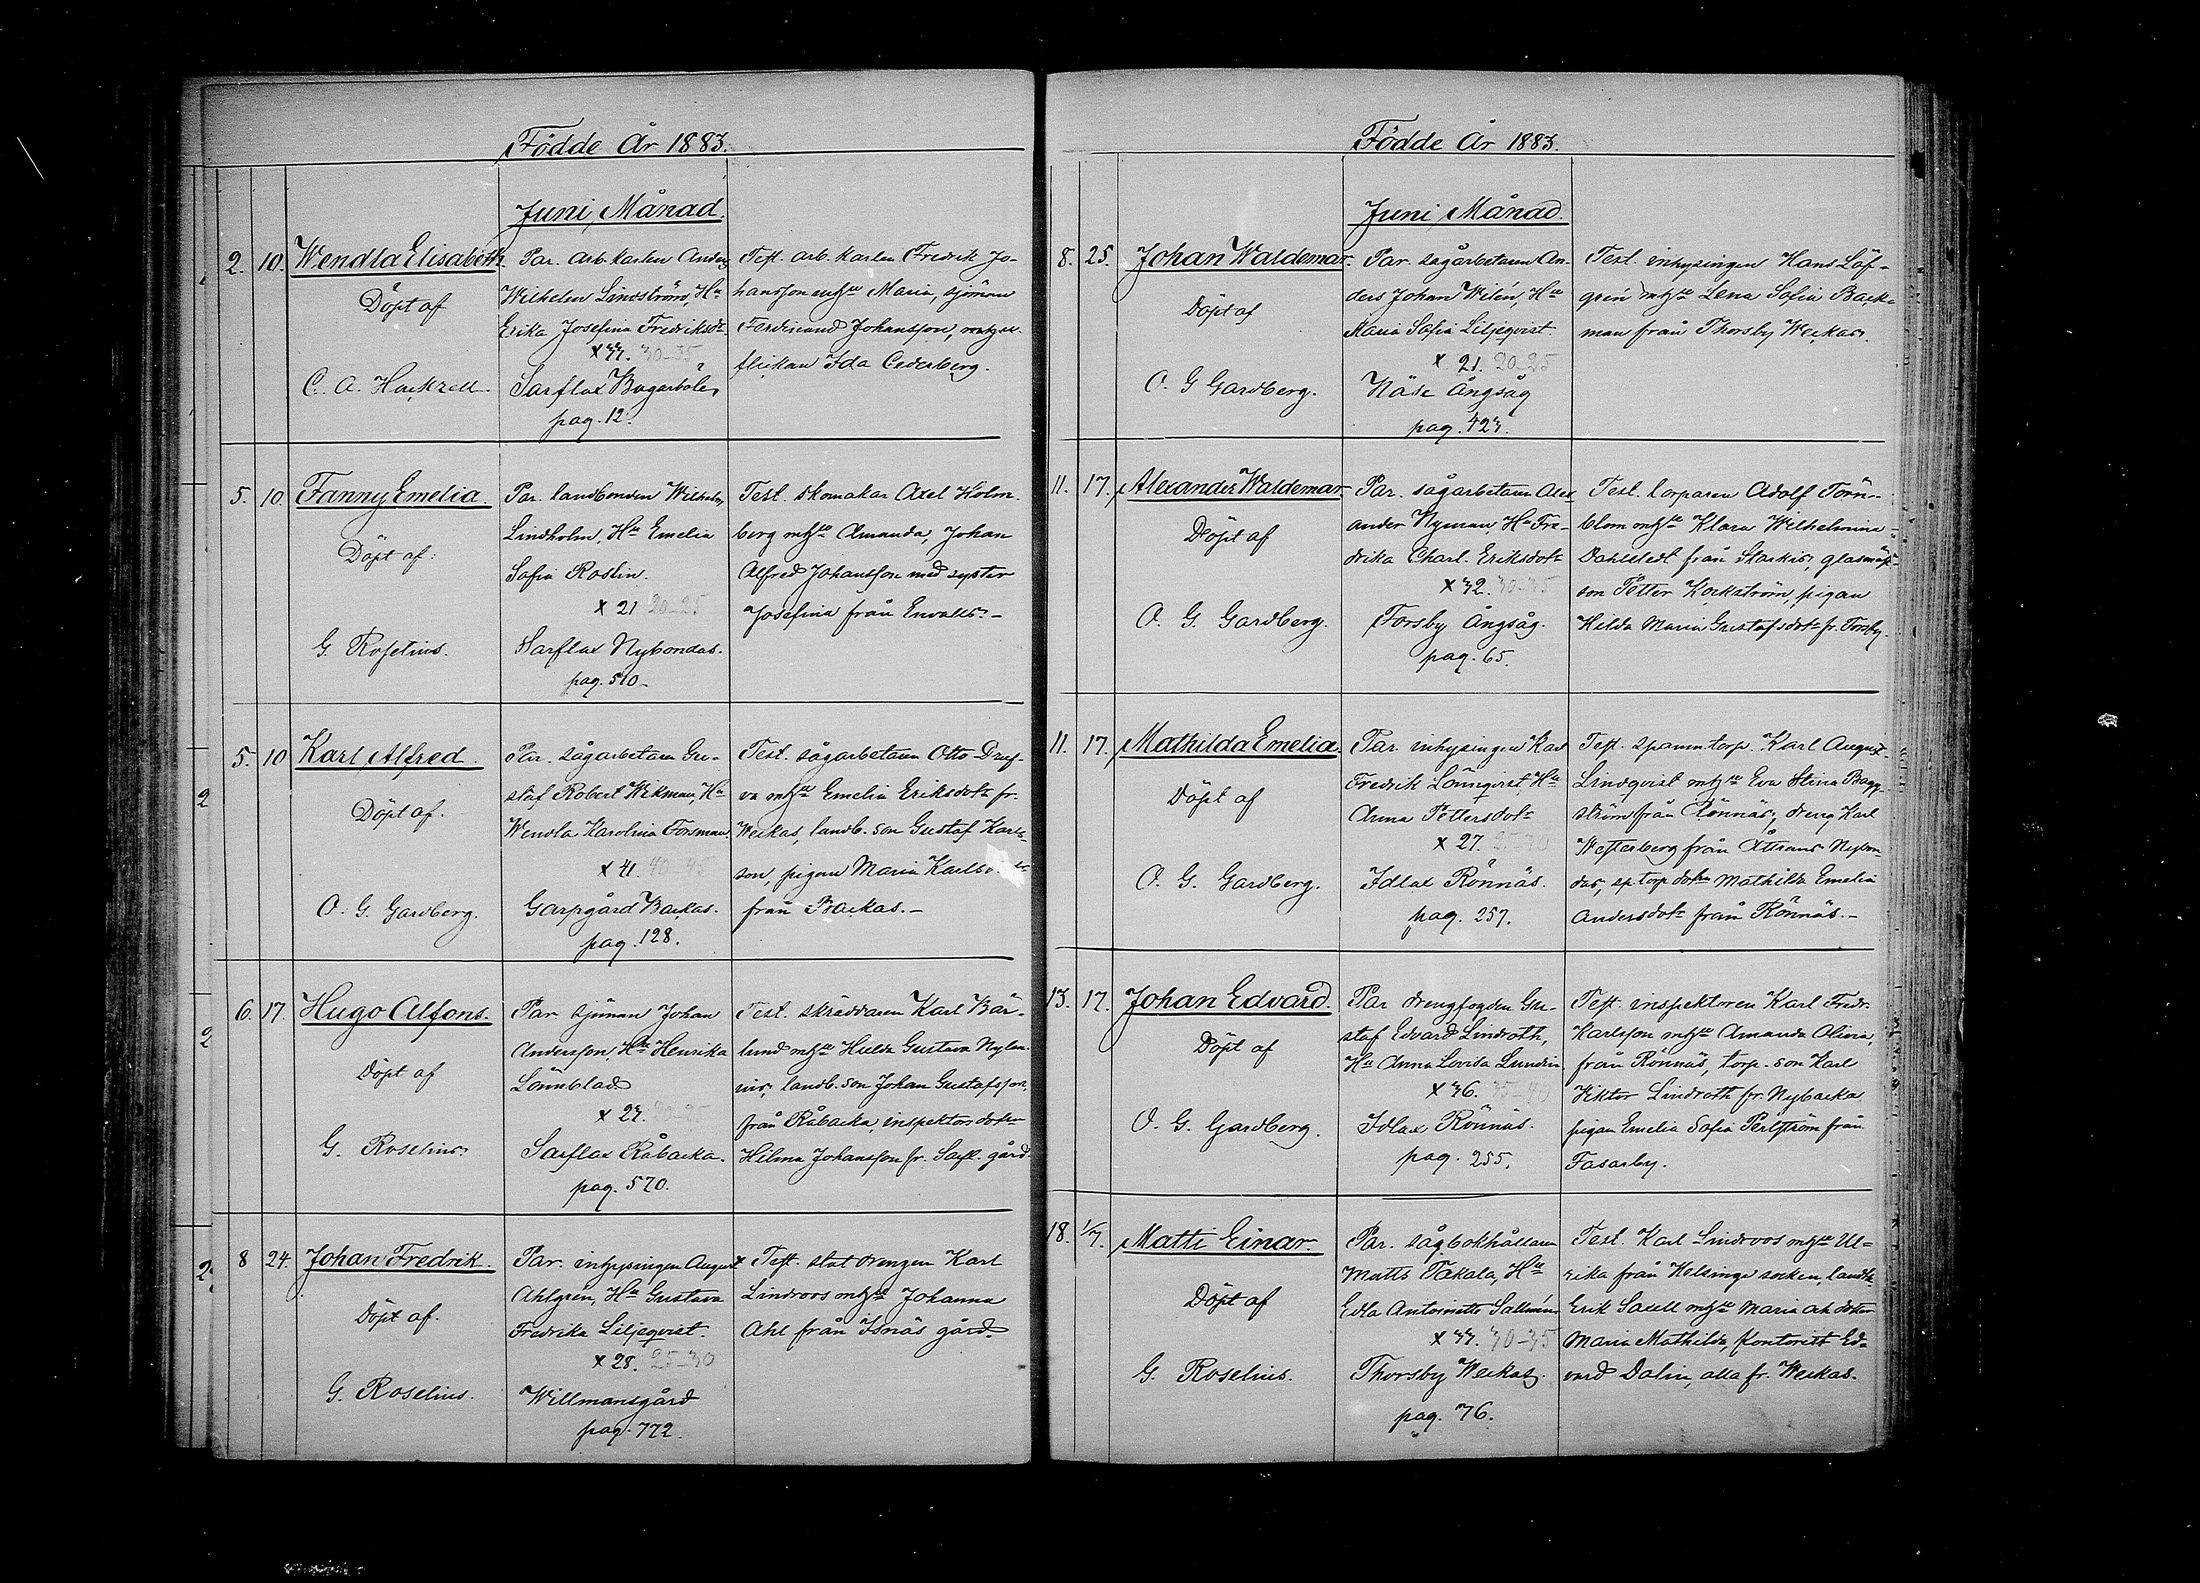 Födde År 1883.
Juni Månad.
2. 10. Wendla Elisabeth.
Döpt af
C. A. Hackzell.
Par. arb. karlen Anders
Wilhelm Lindström, Hu
Erika Josefina Fredriksdr
x 33. 30-35
Sarflax Bugarböle,
pag. 12.
Test. arb. karlen Fredrik Jo-
hansson mhu Maria, sjöman
Ferdinand Johansson,
flickan Ida Cederberg.
5. 10. Fanny Emelia.
Döpt af.
G. Roselius.
Par. landbonden Wilhelm
Lindholm, Hu Emelia
Sofia Roslin.
x 21 20-25
Sarflax Nybondas.
pag. 510.
Test. skomakar Axel Holm-
berg mhu Amanda, Johan
Alfred Johansson med syster
Josefina från Envalls.-
5. 10 Karl Alfred.
Döpt af.
O. G. Gardberg.
Par. sågarbetarn Gu-
staf Robert Wikman, Hu
Wendla Karolina Forsman
x 41. 40-45
Garpgård Backas.
pag. 128.
Test. sågarbetarn Otto Druf-
va mhu Emelia Eriksdotr fr.
Weckas, landb. son Gustaf Karls-
son, pigan Maria
från Backas.-
6. 17. Hugo Alfons.
Döpt af
G. Roselius
Par. sjöman Johan
Andersson, Hu Henrika
Lönnblad
x 23. 20-25
Sarflax Råbacka.
pag. 520.
Test. skräddaren Karl Bär-
lund mhu Hulda Gustava Nylan-
der, landb. son Johan Gustafsson,
från Råbacka, inspektorsdotr
Hilma Johansson fr. Sarfl. gård.
8 24. Johan Fredrik.
Döpt af.
G. Roselius.
Par. inhysingen August
Ahlgrén, Hu Gustava
Fredrika Liljeqvist.
x 28. 25-30
Willmansgård
pag. 772.
x Test. statdrengen Karl
Lindroos mhu Johanna
Ahl från Isnäs gård.
Födde År 1883.
Juni Månad.
8. 25. Johan Waldemar.
Döpt af
O. G Gardberg.
Par. sågarbetarn An-
ders Johan Wilén, Hu
Maria Sofia Liljeqvist.
x 21. 20-25
Näse Ångsåg
pag. 423.
Test. inhysingen Hans Löf-
gren mhu Lena Sofia Back-
man från Thorsby Weckas.
11. 17. Alexander Waldemar.
Döpt af
O. G. Gardberg.
Par. sågarbetarn Alex-
ander Nyman, Hu Fre-
drika Charl. Eriksdotr
x 32. 30-35
Forsby Ångsåg.
pag. 65.
Test. torparen Adolf Törn-
blom mhu Klara Wilhelmina
Dahlstedt från
son Petter Kockström, pigan
Hilda Maria Gustafsdotr fr. Forsby.
11. 17. Mathilda Emelia.
Döpt af
O. G. Gardberg.
Par. inhysingen Karl
Fredrik Lönnqvist, Hu
Anna Pettersdotr
x 27. 25-30
Idlax Rönnäs.
pag. 257.
Test. spanm.torp. Karl August
Lindqvist mhu Eva Stina Bagg-
ström från Rönnäs, dreng Karl
Westerberg från Nybon-
das, sp.torp.dotrn Mathilda Emelia
Andersdotr från Rönnäs.-
13. 17. Johan Edvard.
Döpt af
O. G. Gardberg.
Par drengfogden Gu-
staf Edvard Lindroth,
Hu Anna Lovisa Lundin
x 36. 35-40
Idlax Rönnäs.
pag. 255.
Test. inspektoren Karl Fredr.
Karlsson mhu Amanda Olivia,
från Rönnäs, torp. son Karl
Viktor Lindroth fr. Nybacka
pigan Emelia Sofia Perlström från
Fasarby.
18. 1/7. Matti Einar.
Döpt af
G. Roselius.
Par. sågbokhållarn
Matts Takala, Hu
Edla Antoinette Sallmén
x 33. 30-35
Thorsby Weckas.
pag. 76.
Test. Karl Lindroos mhu Ul-
rika från Helsinge socken, landb.
Erik Saxell mhu Maria och dotter
Maria Mathilda, Kontorist Ed-
vard Dalin, alla fr. Weckas.